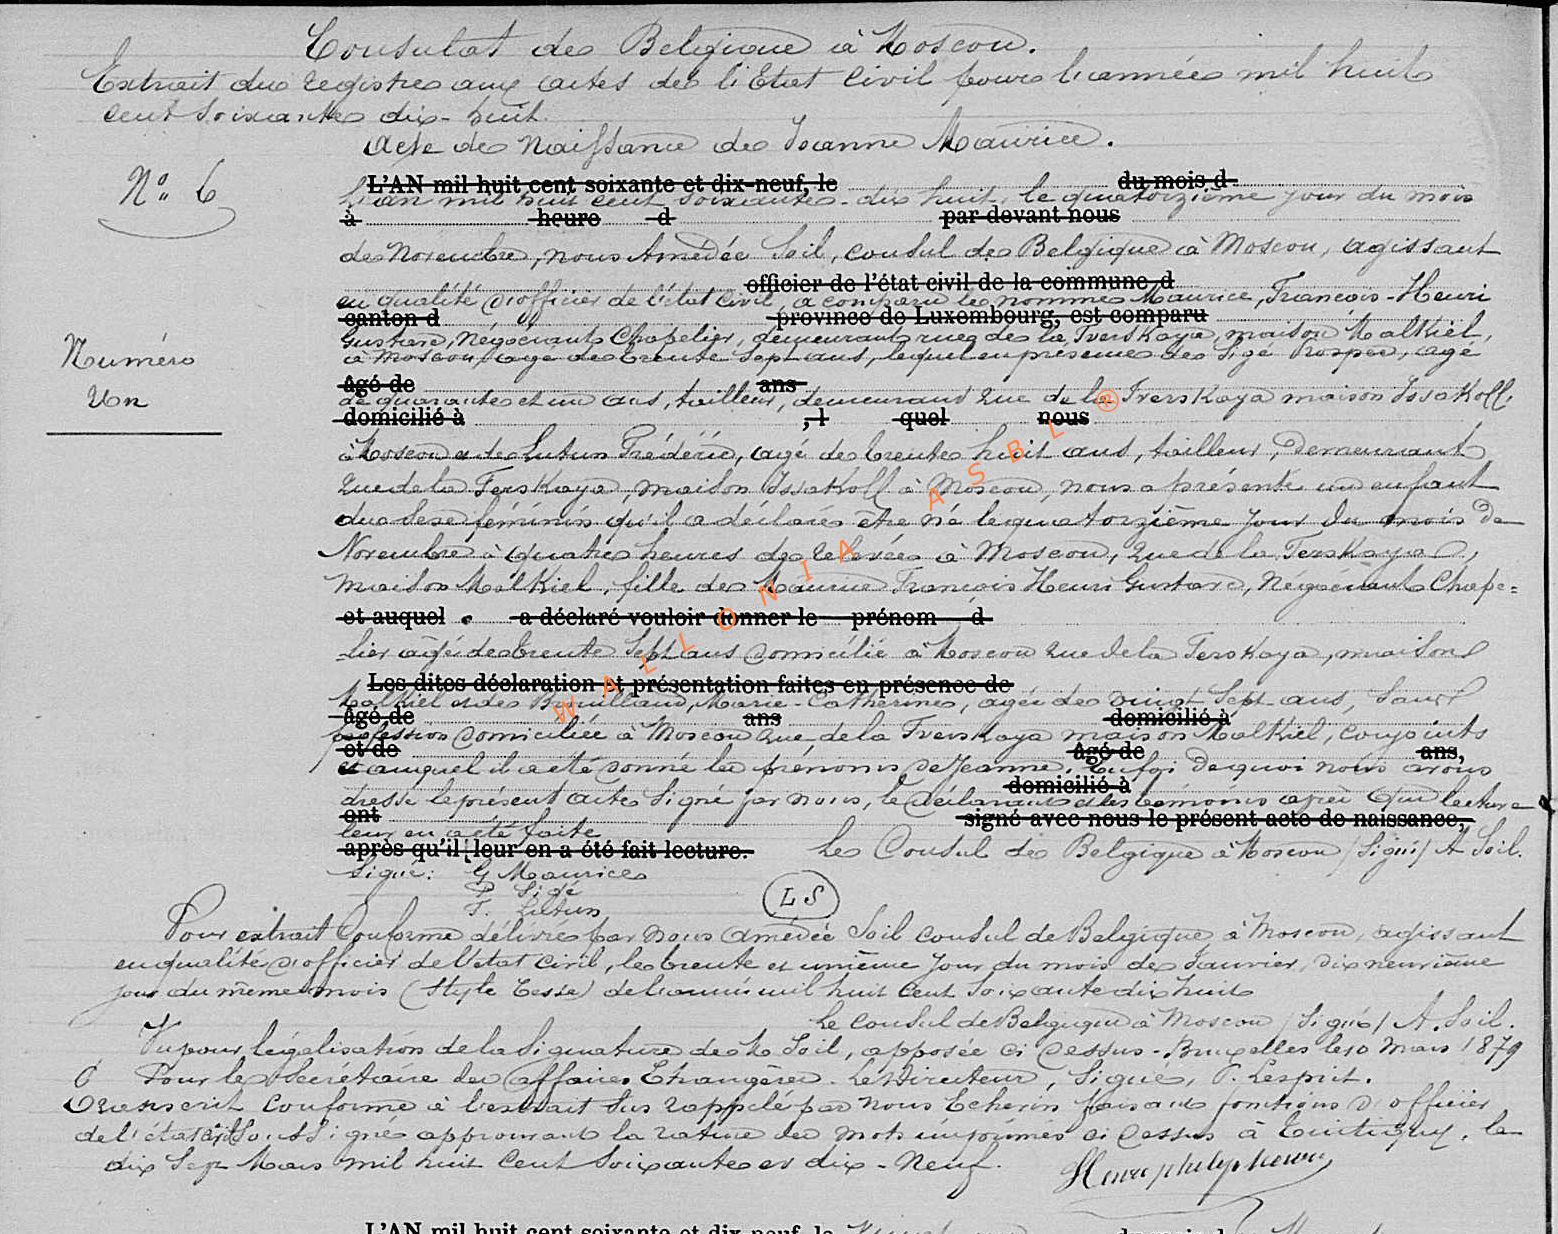 Consulat de Belgique à Moscou.
Extrait du registre aux actes de l'Etat Civil pour l'année mil huit
cent soixante dix-huit.
Acte de Naissance de Jeanne Maurice.
N° 6
L'AN mil huit cent soixante et dix-neuf, le du mois d
L'an mil huit cent soixante-dix huit, le quatorzième jour du mois
à heure d par devant nous
de Novembre, nous Amédée Soil, consul de Belgique à Moscou, agissant
officier de l'état civil de la commune d
en qualité d'officier de l'état civil, a comparu le nommé Maurice, François-Henri
canton d province de Luxembourg, est comparu
Gustave, Négociant Chapelier, demeurant rue de la Tverskaya, maison Malkiel,
Numéro
Un
à Moscou, agé de trente sept ans, lequel en présence de Sigé Prosper, agé
âgé de ans
de quarante et un ans, tailleur, demeurant rue de la Tverskaya maison Issakoff,
domicilié à , l quel nous
à Moscou et de Lutun Frédéric, agé de trente huit ans, tailleur, demeurant
rue de la Terskaya maison Issakoff à Moscou, nous a présenté un enfant
du sexe féminin qu'il a déclaré être né le quatorzième jour du mois de
Novembre à quatre heures de relevée à Moscou, rue de la Terskaya,
maison Malkiel, fille de Maurice François Henri Gustave, Négociant Chape=
et auquel a déclaré vouloir donner le prénom d
lier âgé de trente sept ans domicilié à Moscou rue de la Terskaya, maison
Les dites déclaration et présentation faites en présence de
Malkiel et de Marie-Catherine, agée de vingt sept ans, sans
âgé de ans domicilié à
profession domiciliée à Moscou rue de la Tverskaya maison Malkiel, conjoints
et de âgé de ans,
et auquel il a été donné les prénoms de Jeanne. En foi de quoi nous avons
domicilié à
dressé le présent acte signé par nous, le déclarant et les témoins après que lecture
ont signé avec nous le présent acte de naissance,
leur en a été faite
après qu'il leur en a été fait lecture. Le Consul de Belgique à Moscou (Signé) A Soil.
Signé: G Maurice
P Sigé
F. Lutun
LS
Pour extrait conforme délivré par nous Amédée Soil consul de Belgique à Moscou, agissant
en qualité d'officier de l'état civil, le trente et unième jour du mois de Janvier, dix neuvième
jour du même mois (Style ) de l'année mil huit cent soixante dix huit
Le Consul de Belgique à Moscou (Signé) A. Soil.
Vu pour légalisation de la Signature de M Soil, apposée ci dessus - Bruxelles le 10 Mars 1879
Pour le Secrétaire des affaires Etrangères. Le Directeur, Signé, Lespirt.
Transcrit conforme à l'extrait sus rappelé par nous Echevin faisant fonctions d'officier
de l'état civil Soussigné approuvant la rature des mots imprimés ci dessus à Tintigny, le
dix Sept Mars mil huit cent soixante et dix-Neuf.
L'AN mil huit cent soixante et dix-neuf, le du mois d
WALLONIA ASBL ®